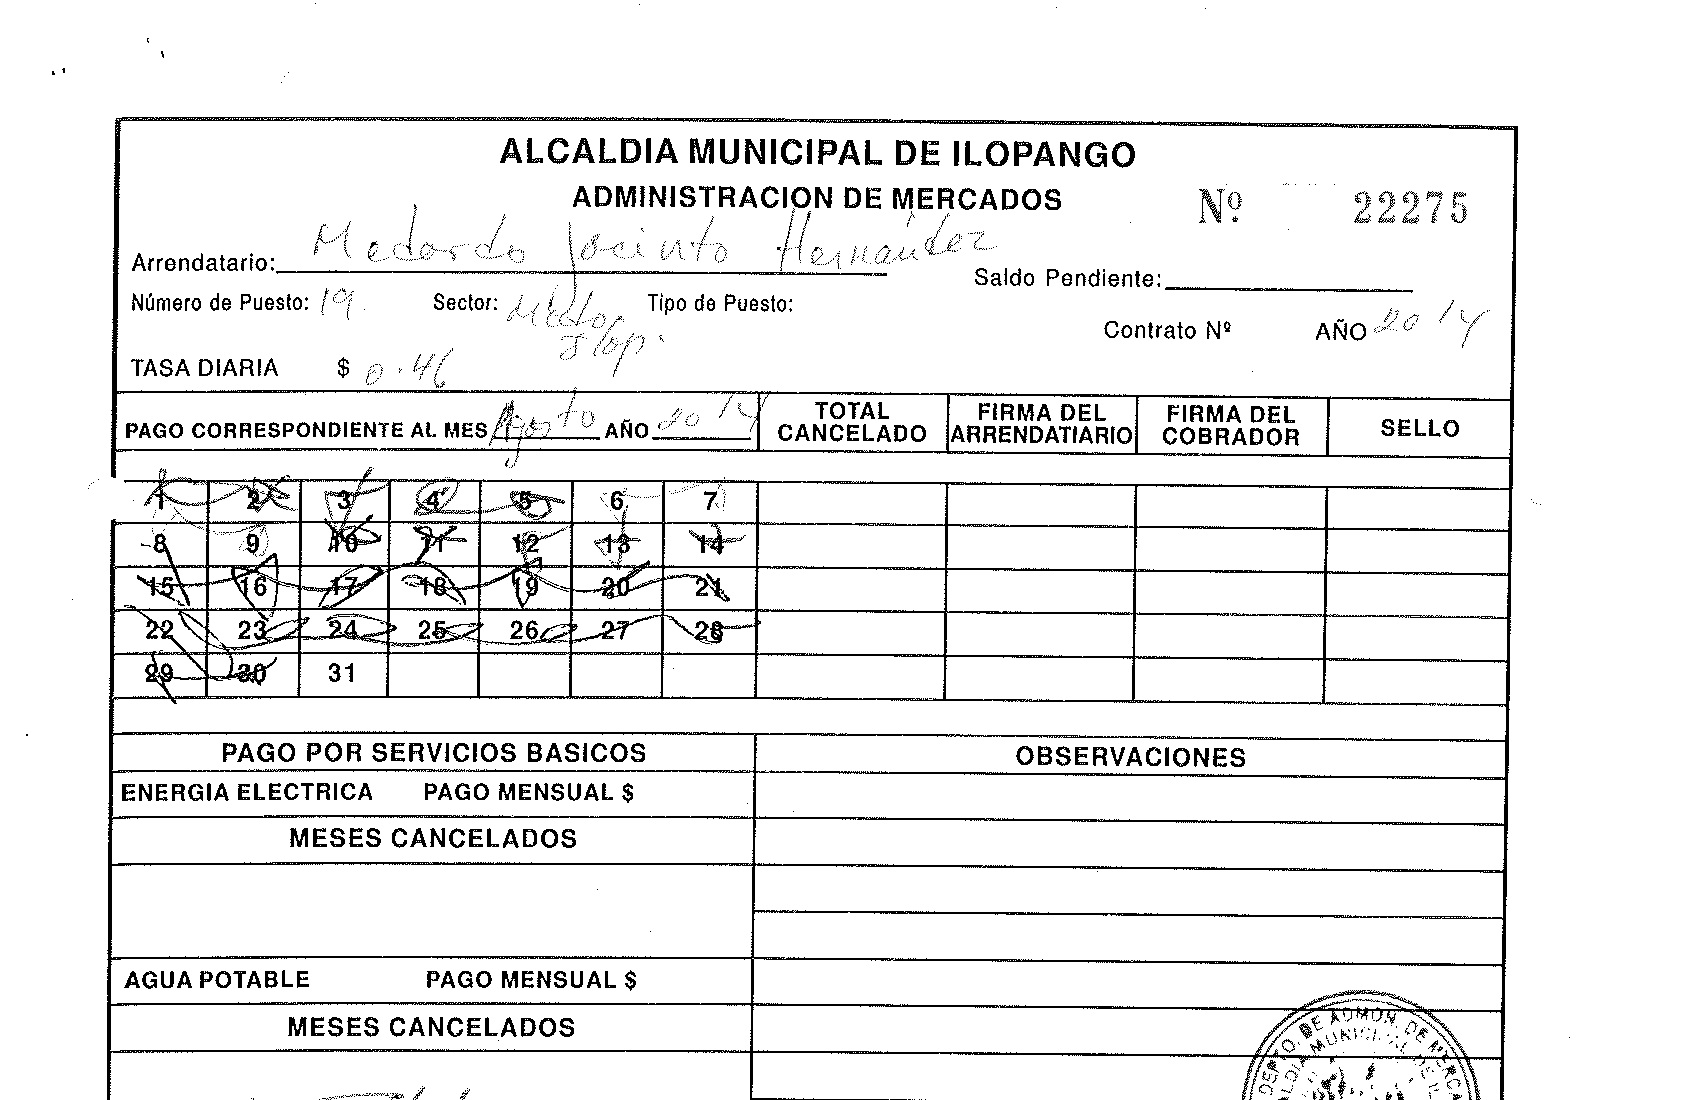 ALCALDIA MUNICIPAL DE ILOPANGO
ADMINISTRACION DE MERCADOS Nº 22275
Arrendatario: Medardo Jacinto Hernández Saldo Pendiente:
Número de Puesto: 19. Sector: Mdo. Ilop. Tipo de Puesto:
Contrato Nº AÑO 2014
TASA DIARIA $ 0.46
PAGO CORRESPONDIENTE AL MES Agosto AÑO 2014 TOTAL CANCELADO FIRMA DEL ARRENDATIARIO FIRMA DEL COBRADOR SELLO
1 2 3 4 5 6 7
8 9 10 11 12 13 14
15 16 17 18 19 20 21
22 23 24 25 26 27 28
29 30 31
PAGO POR SERVICIOS BASICOS OBSERVACIONES
ENERGIA ELECTRICA PAGO MENSUAL $
MESES CANCELADOS
AGUA POTABLE PAGO MENSUAL $
MESES CANCELADOS
DEPTO. DE ADMON. DE MERCA
ALDIA MUNICIPAL DE IL